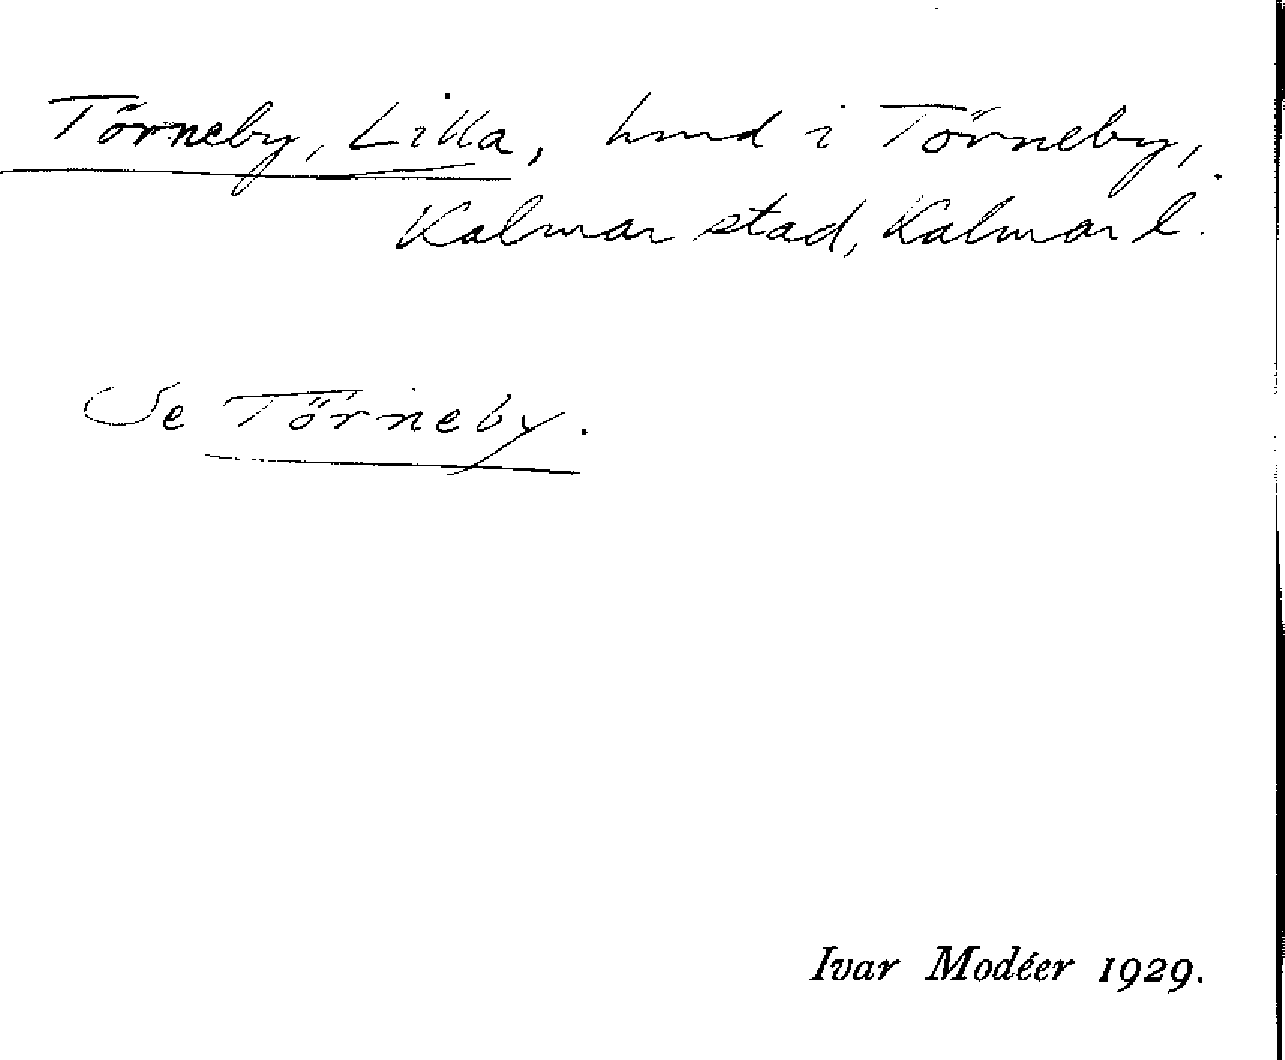 Törneby, Lilla, hmd i Törneby,
Kalmar stad, Kalmar l.
Se Törneby.
Ivar Modéer 1929.